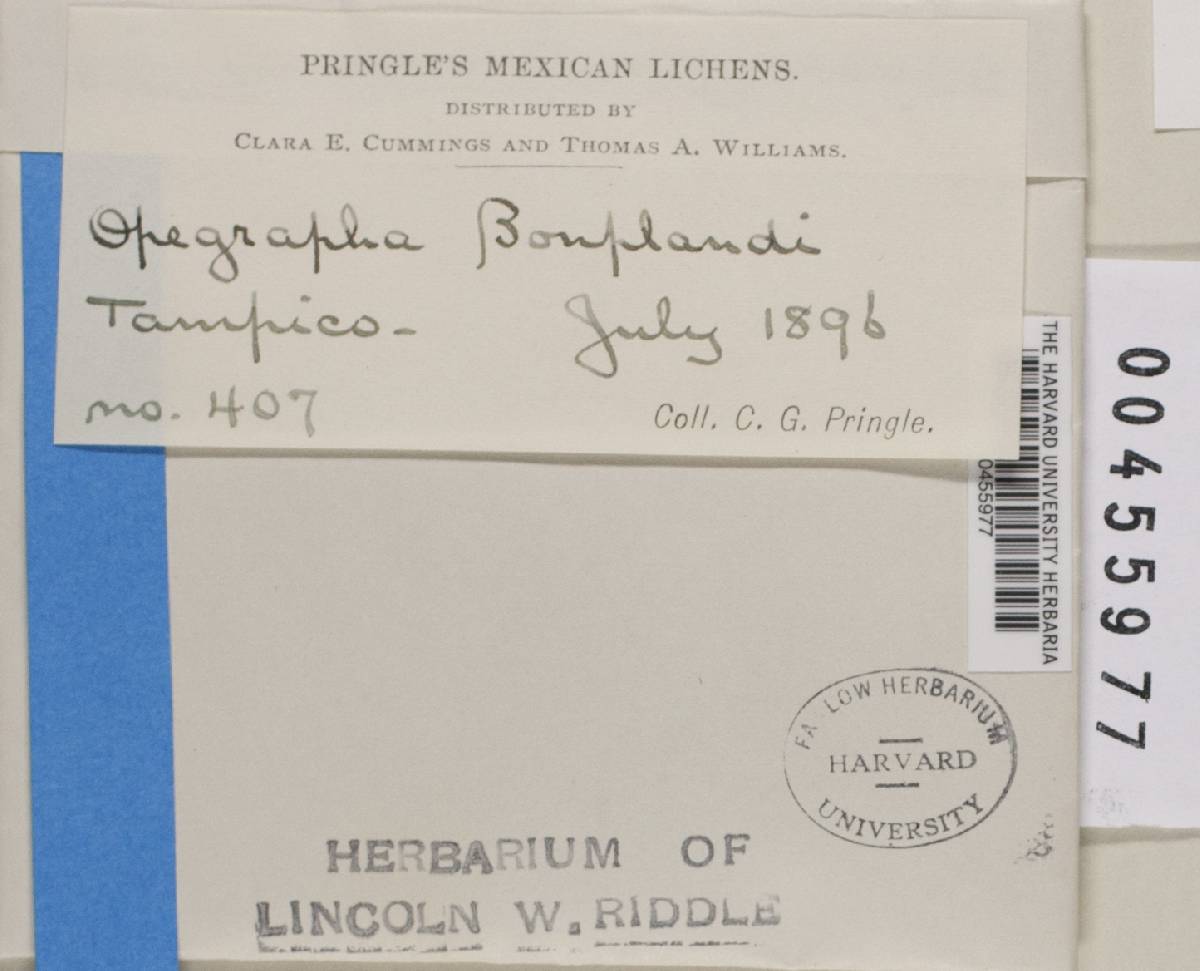 PRINGLE'S MEXICAN LICHENS.
DISTRIBUTED BY
CLARA E. CUMMINGS AND THOMAS A. WILLIAMS.
Opegrapha Bonplandi
Tampico- July 1896
no. 407
Coll. C. G. Pringle.
THE HARVARD UNIVERSITY HERBARIA
0455977
00455977
FA LOW HERBARIUM
HARVARD
UNIVERSITY
HERBARIUM OF
LINCOLN W. RIDDLE